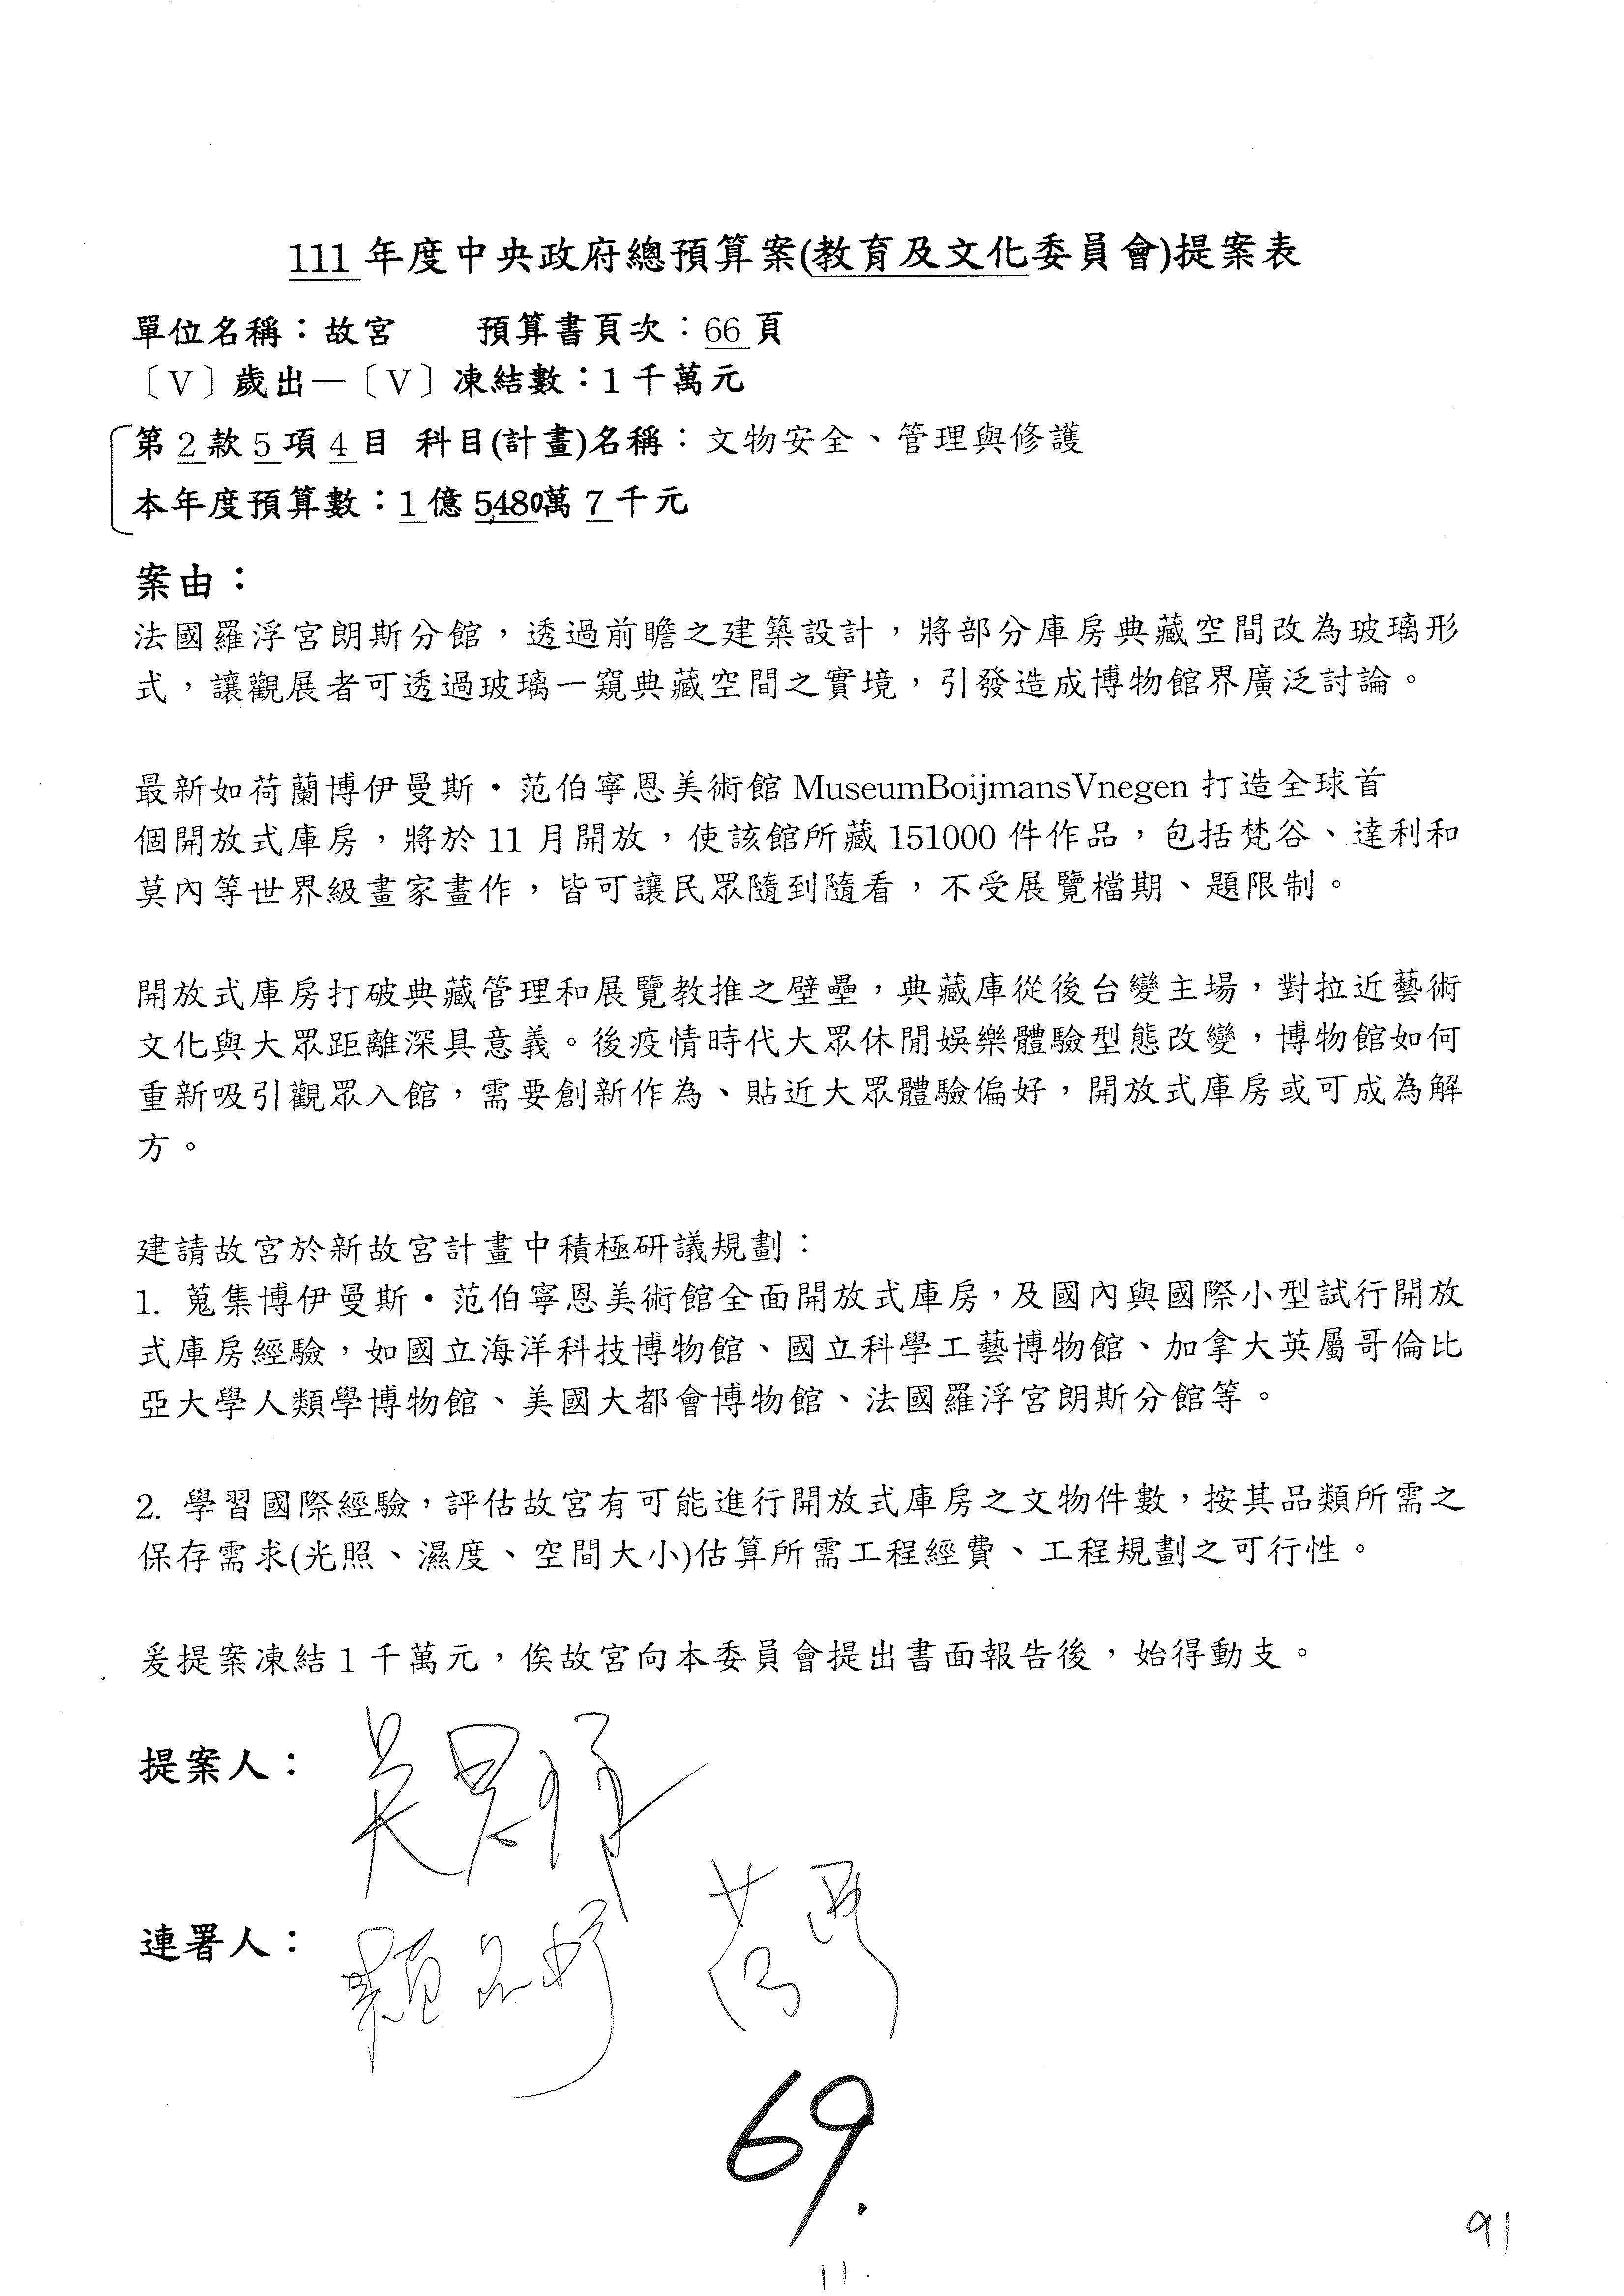 111年度中央政府總預算案(教育及文化委員會)提案表
單位名稱：故宮　　預算書頁次：66頁
〔V〕歲出—〔V〕凍結數：1千萬元
第2款5項4目 科目(計畫)名稱：文物安全、管理與修護
本年度預算數：1億5,480萬7千元
案由：
法國羅浮宮朗斯分館，透過前瞻之建築設計，將部分庫房典藏空間改為玻璃形
式，讓觀展者可透過玻璃一窺典藏空間之實境，引發造成博物館界廣泛討論。
最新如荷蘭博伊曼斯•范伯寧恩美術館 MuseumBoijmansVnegen 打造全球首
個開放式庫房，將於 11 月開放，使該館所藏 151000 件作品，包括梵谷、達利和
莫內等世界級畫家畫作，皆可讓民眾隨到隨看，不受展覽檔期、題限制。
開放式庫房打破典藏管理和展覽教推之壁壘，典藏庫從後台變主場，對拉近藝術
文化與大眾距離深具意義。後疫情時代大眾休閒娛樂體驗型態改變，博物館如何
重新吸引觀眾入館，需要創新作為、貼近大眾體驗偏好，開放式庫房或可成為解
方。
建請故宮於新故宮計畫中積極研議規劃：
1. 蒐集博伊曼斯•范伯寧恩美術館全面開放式庫房，及國內與國際小型試行開放
式庫房經驗，如國立海洋科技博物館、國立科學工藝博物館、加拿大英屬哥倫比
亞大學人類學博物館、美國大都會博物館、法國羅浮宮朗斯分館等。
2. 學習國際經驗，評估故宮有可能進行開放式庫房之文物件數，按其品類所需之
保存需求(光照、濕度、空間大小)估算所需工程經費、工程規劃之可行性。
爰提案凍結1千萬元，俟故宮向本委員會提出書面報告後，始得動支。
提案人：
連署人：
69.
91